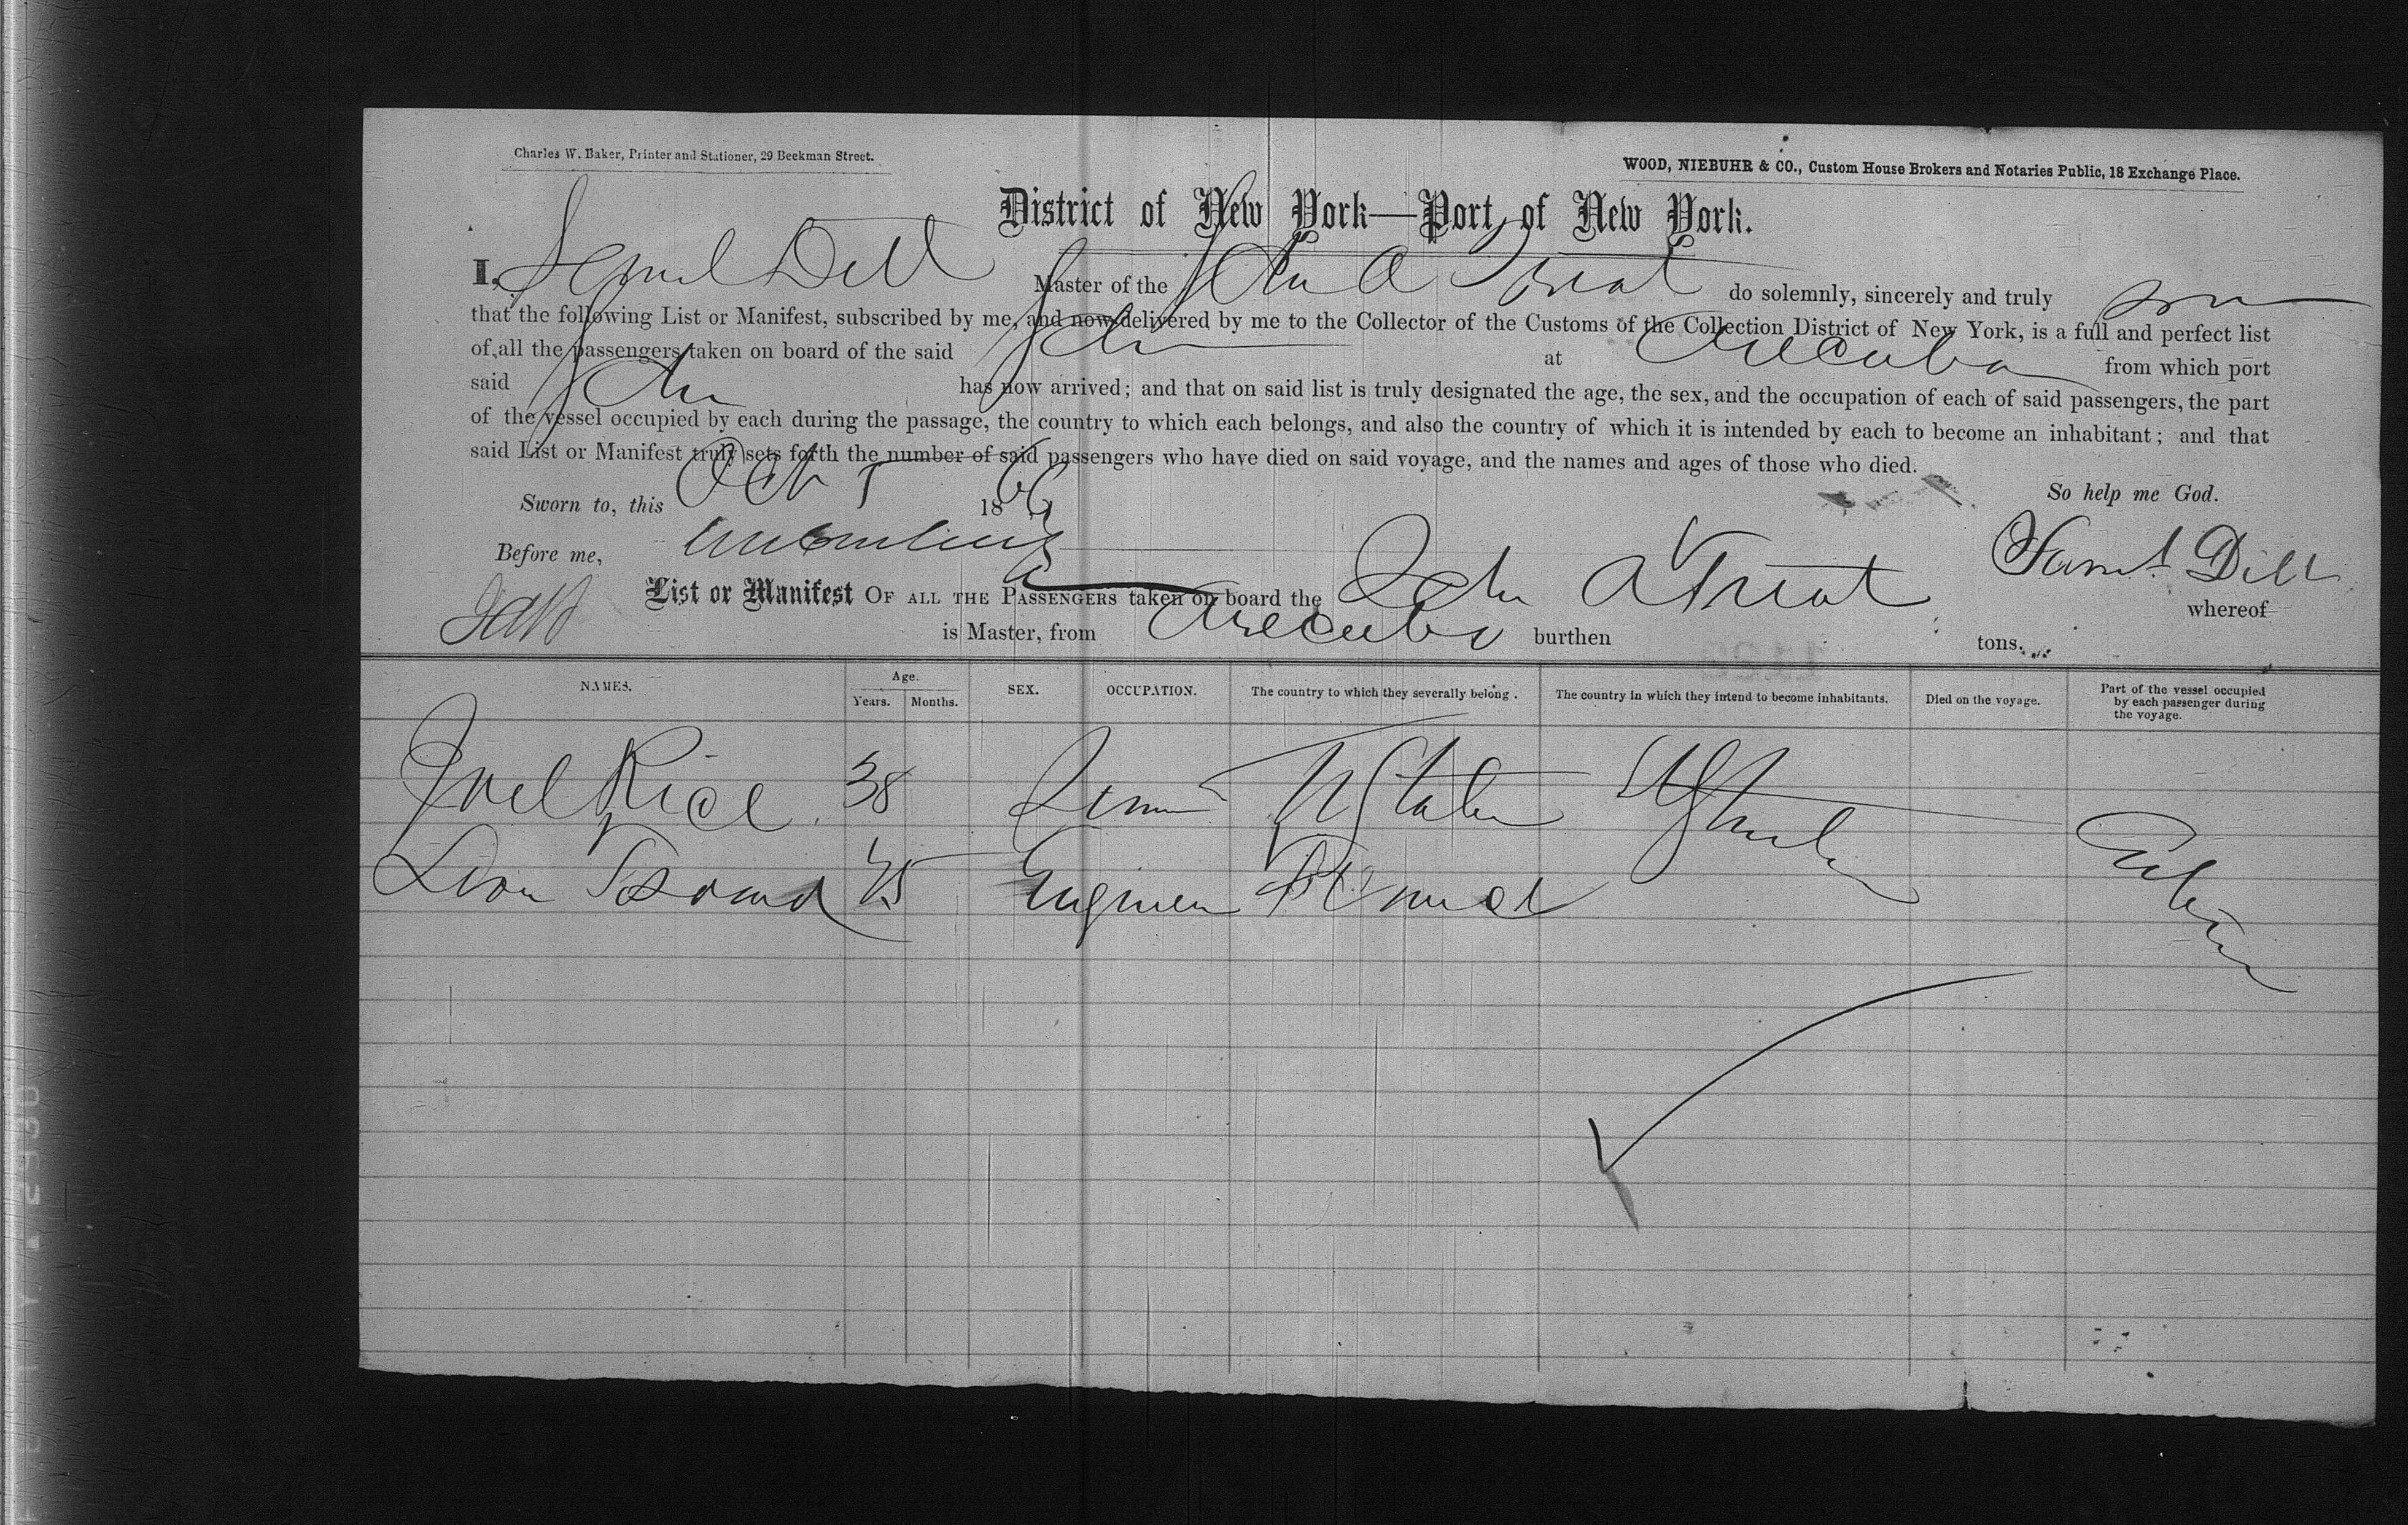 Charles W. Baker, Printer and Stationer, 29 Beekman Street.
WOOD, NIEBUHR & CO., Custom House Brokers and Notaries Public, 18 Exchange Place.
District of New York—Port of New York.
I, Samuel Dill Master of the John A Treat do solemnly, sincerely and truly
that the following List or Manifest, subscribed by me, and now delivered by me to the Collector of the Customs of the Collection District of New York, is a full and perfect list
of all the passengers taken on board of the said John at Arecubo from which port
said John has now arrived; and that on said list is truly designated the age, the sex, and the occupation of each of said passengers, the part
of the vessel occupied by each during the passage, the country to which each belongs, and also the country of which it is intended by each to become an inhabitant; and that
said List or Manifest truly sets forth the number of said passengers who have died on said voyage, and the names and ages of those who died.
Sworn to, this Oct 5 1866 So help me God.
Before me, Saml Dill
List or Manifest OF ALL THE PASSENGERS taken on board the John A Treat whereof
is Master, from Arecubo burthen tons.
NAMES. Age. Years. Months. SEX. OCCUPATION. The country to which they severally belong. The country in which they intend to become inhabitants. Died on the voyage. Part of the vessel occupied by each passenger during the voyage.
Joel Rice 38 U States U States
Leon 45 Engineer France Cabin